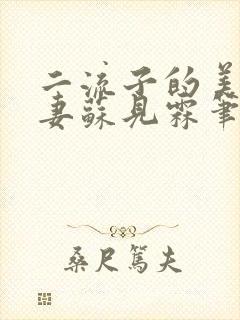 二流子的美
妻蘇見霖筆
桑尺篤夫